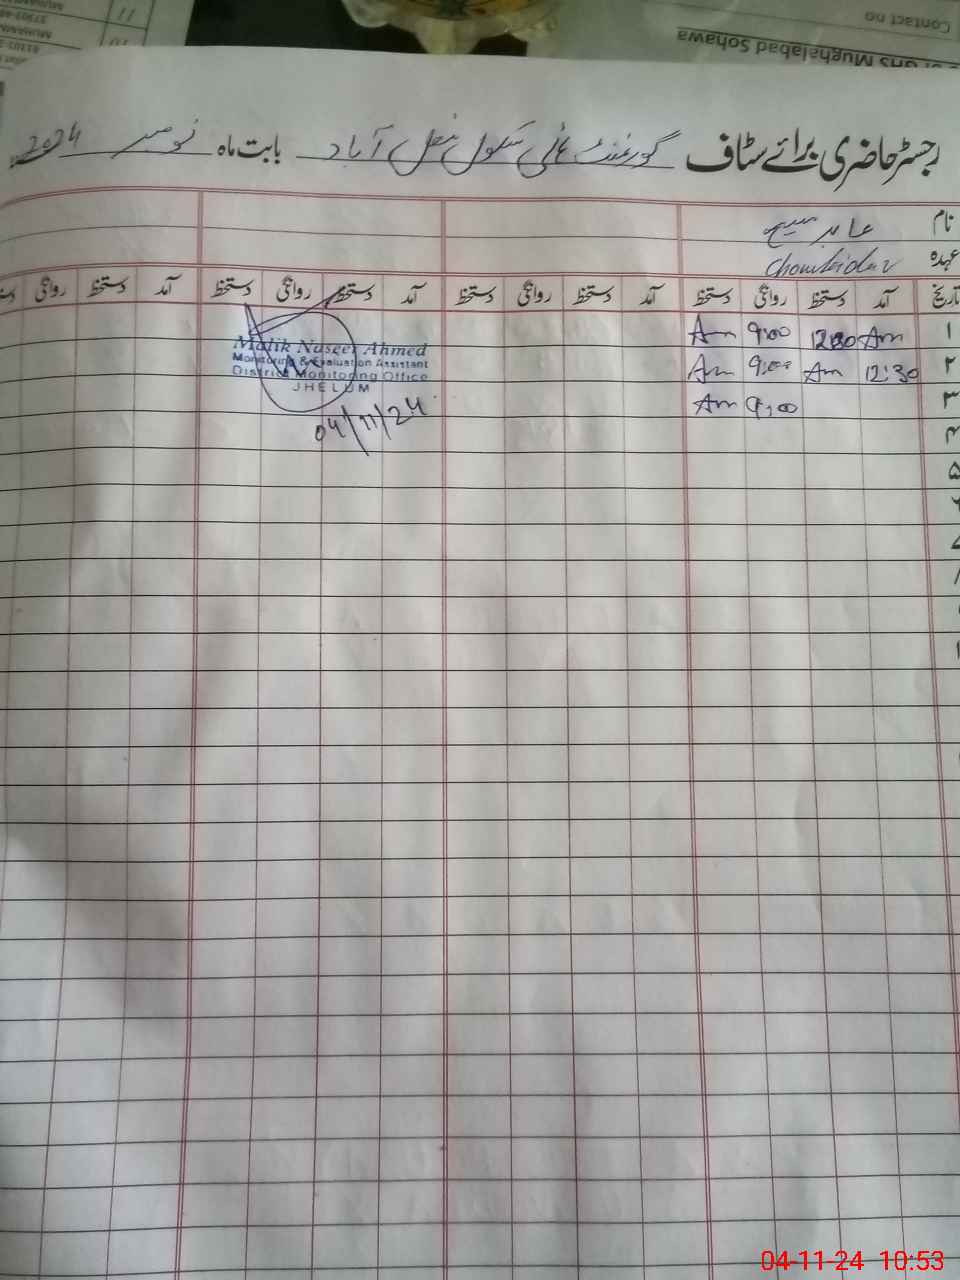 Contact no
GHS Mughalabad Sohawa
11
10
رجسٹر حاضری برائے سٹاف گورنمنٹ ہائی سکول مغل آباد بابت ماہ نومبر 2024
نام عابد مسیح
عہدہ Chowkidar
تاریخ آمد دستخط روانگی دستخط آمد دستخط روانگی دستخط آمد دستخط روانگی دستخط آمد دستخط روانگی
۱ Am 12:30 9:00 Am
۲ 12:30 Am 9:00 Am
۳ 9:00 Am
۴
۵
Malik Naseer Ahmed
Monitoring & Evaluation Assistant
District Monitoring Office
JHELUM
04/11/24
04-11-24 10:53